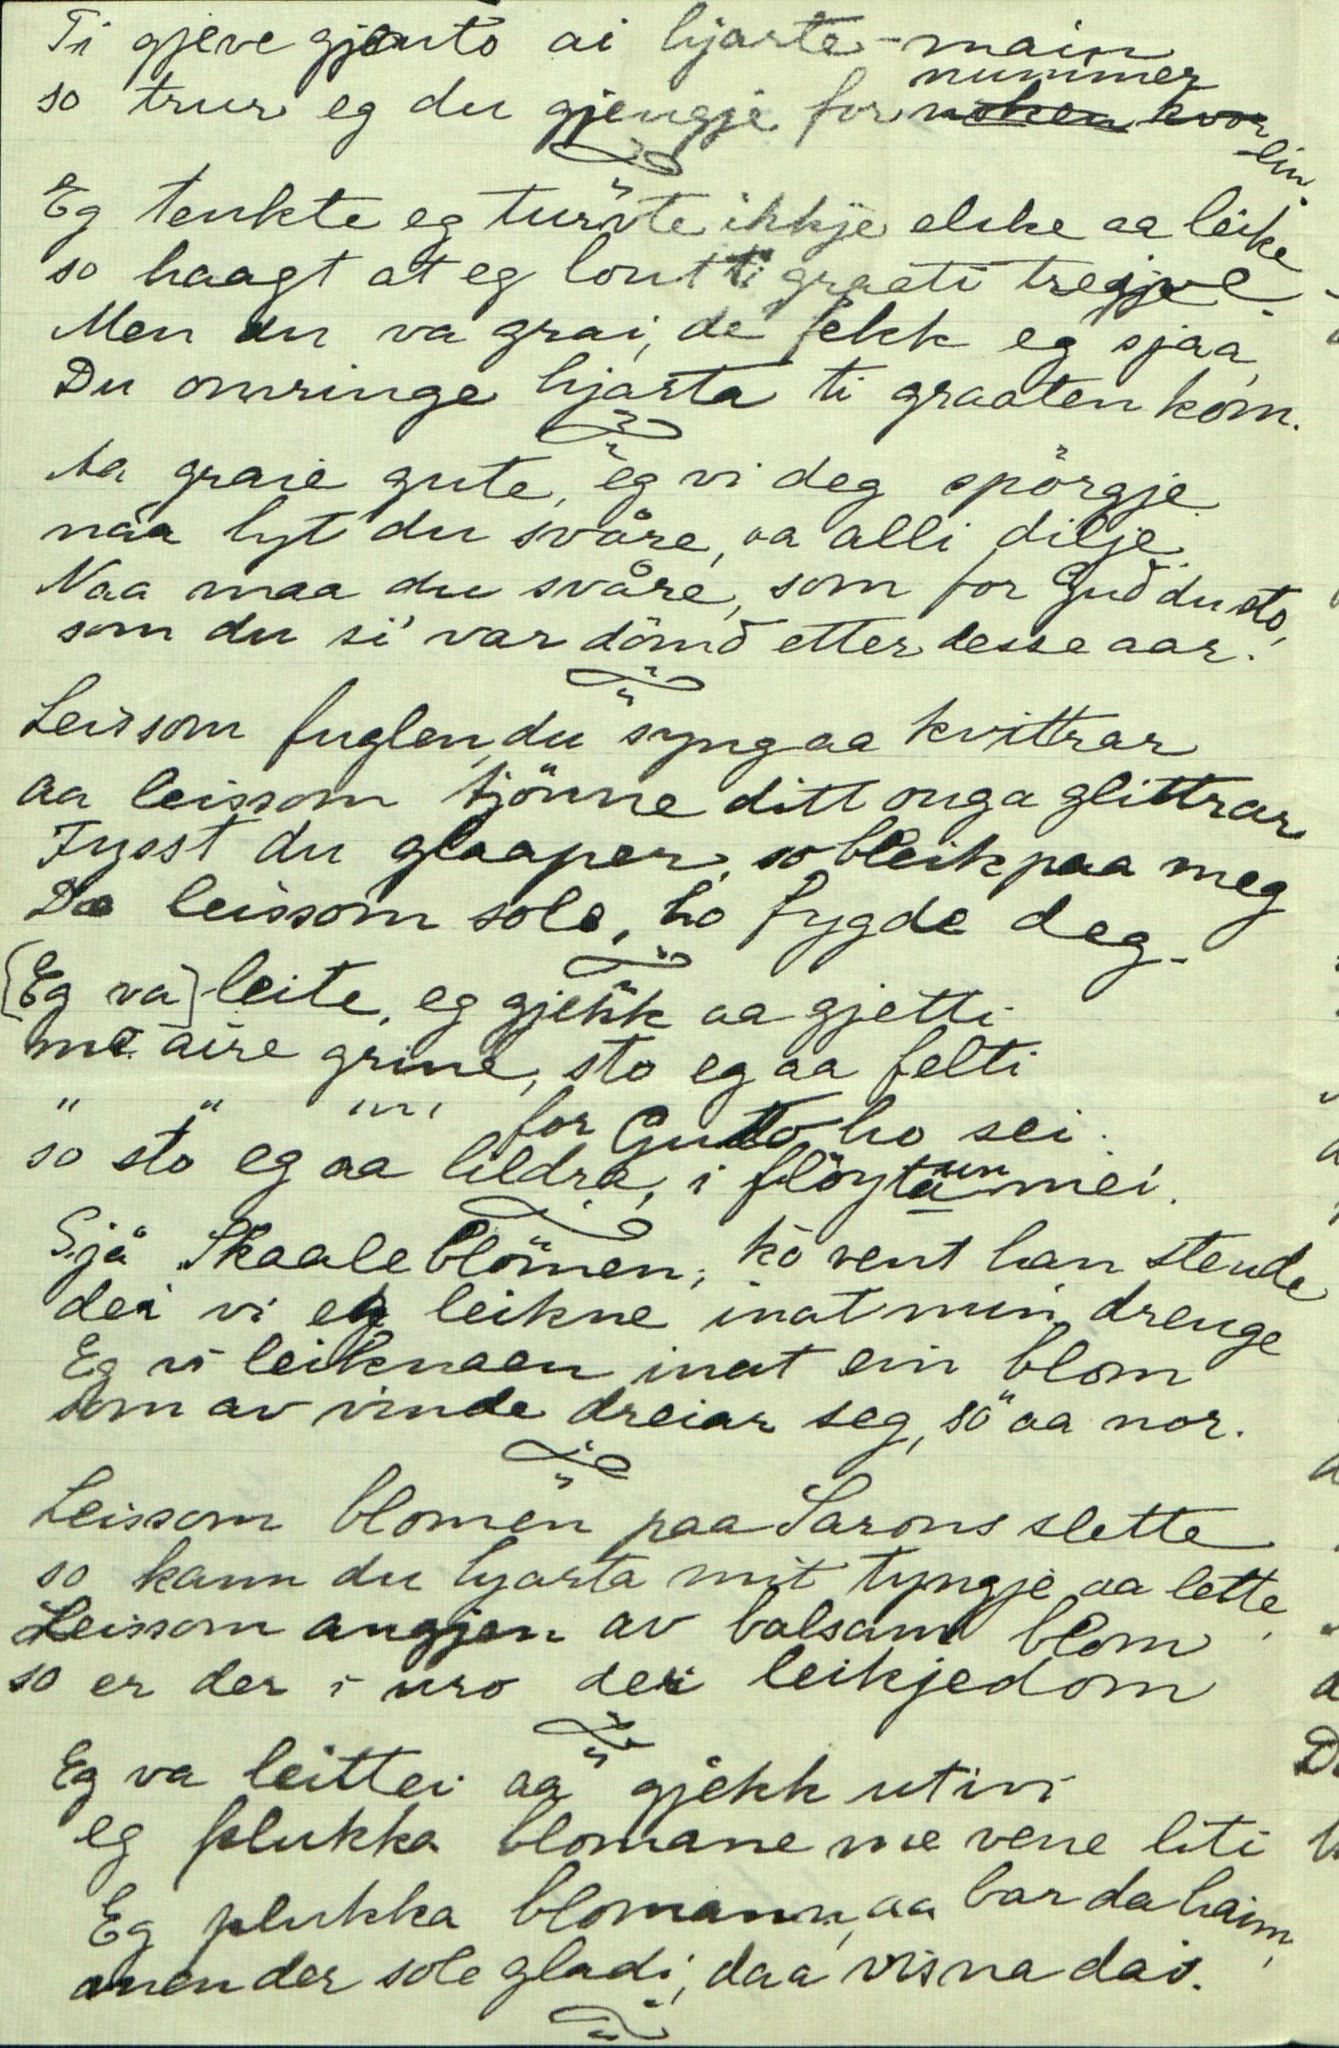 Ti gjeve gjento ai hjarte-main
so trur eg du gjengje for nummer ein.
Eg tenkte eg turvte ikkje elske aa leike
so haagt at eg lout ti graati tregje
Men du va grai, de fekk eg sjaa,
Du omringe hjarta ti graaten kom.
Aa graie gute, eg vi deg spörgje
naa lyt du svåre, aa alli dilje.
Naa maa du svåre, som for Guð du sto,
som du si var dömð etter desse aar.
Leissom fuglen, du syng aa kvittrar
aa leissom tjönne ditt ouga glittrar
Fysst du glaaper, so bleik paa meg
Da leissom sole, ho fygde deg.
[Eg va] leite, eg gjekk aa gjetti
me aire grine, sto eg aa felti
" " " " for Gutto ho sei.
so sto eg aa lildra, i flöytaun mei.
Sjå Skaaleblömen, ko vent han stende
dei vi eg leikne inat min drenge
Eg vi leiknaen inat ein blom
som av vinde dreiar seg, sö aa nor.
Leissom blomen paa Sarons slette
so kann du hjarta mit tyngje aa lette,
Leissom angjen av balsam blom
so er der i uro dei leikjedom
Eg va leittei aa gjekk utivi
eg plukka blomane me vene liti
Eg plukka blomann, aa bar da haim,
men der sole gladi, daa visna dai.